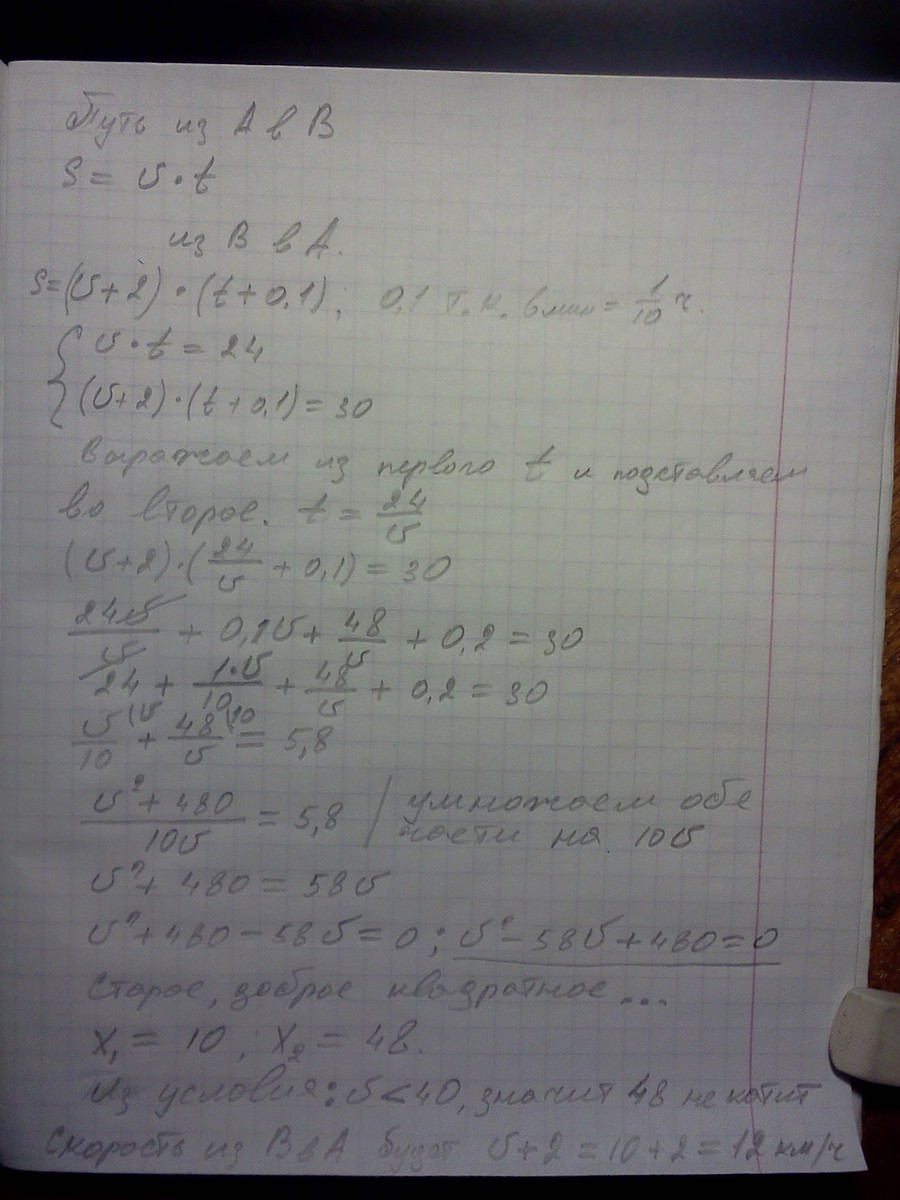 Путь из А в В
S = v · t
из В в А.
S=(v+2) · (t+0,1); 0,1 т.к. 6 мин = 1/10 ч.
{ v · t = 24
(v+2) · (t+0,1) = 30
Выражаем из первого t и подставляем
во второе. t = 24/v
(v+2) · (24/v + 0,1) = 30
24v/v + 0,1v + 48/v + 0,2 = 30
24 + 1·v/10 + 48/v + 0,2 = 30
v/10 (v + 48/v (10 = 5,8
v² + 480 / 10v = 5,8 | умножаем обе
части на 10v
v² + 480 = 58v
v² + 480 − 58v = 0; v² − 58v + 480 = 0
Старое, доброе квадратное ...
x₁ = 10, x₂ = 48.
Из условия: v < 40, значит 48 не катит
Скорость из В в А будет v+2 = 10+2 = 12 км/ч